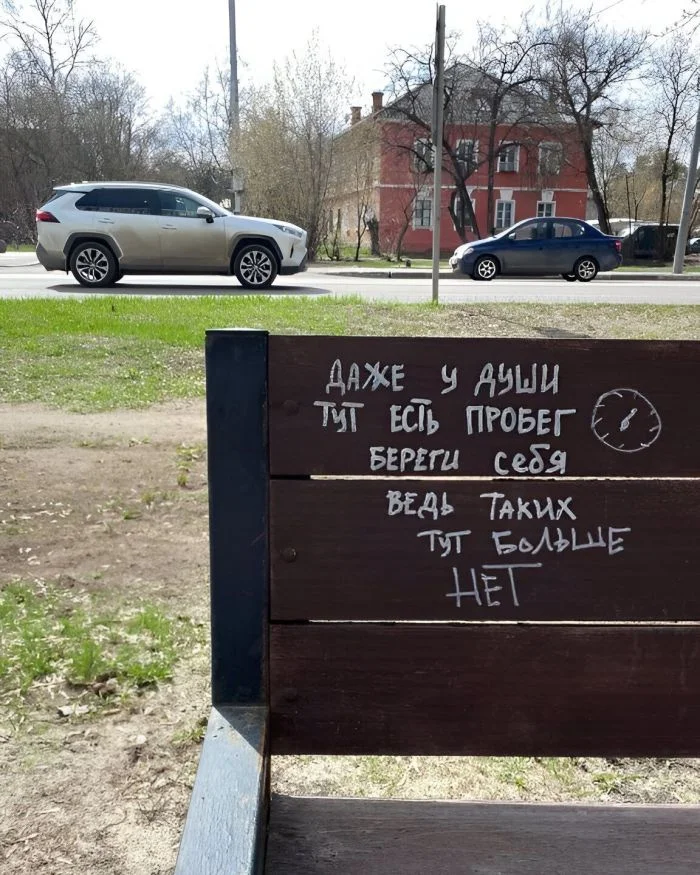 ДАЖЕ У ДУШИ
ТУТ ЕСТЬ ПРОБЕГ
БЕРЕГИ СЕБЯ
ВЕДЬ ТАКИХ
ТУТ БОЛЬШЕ
НЕТ